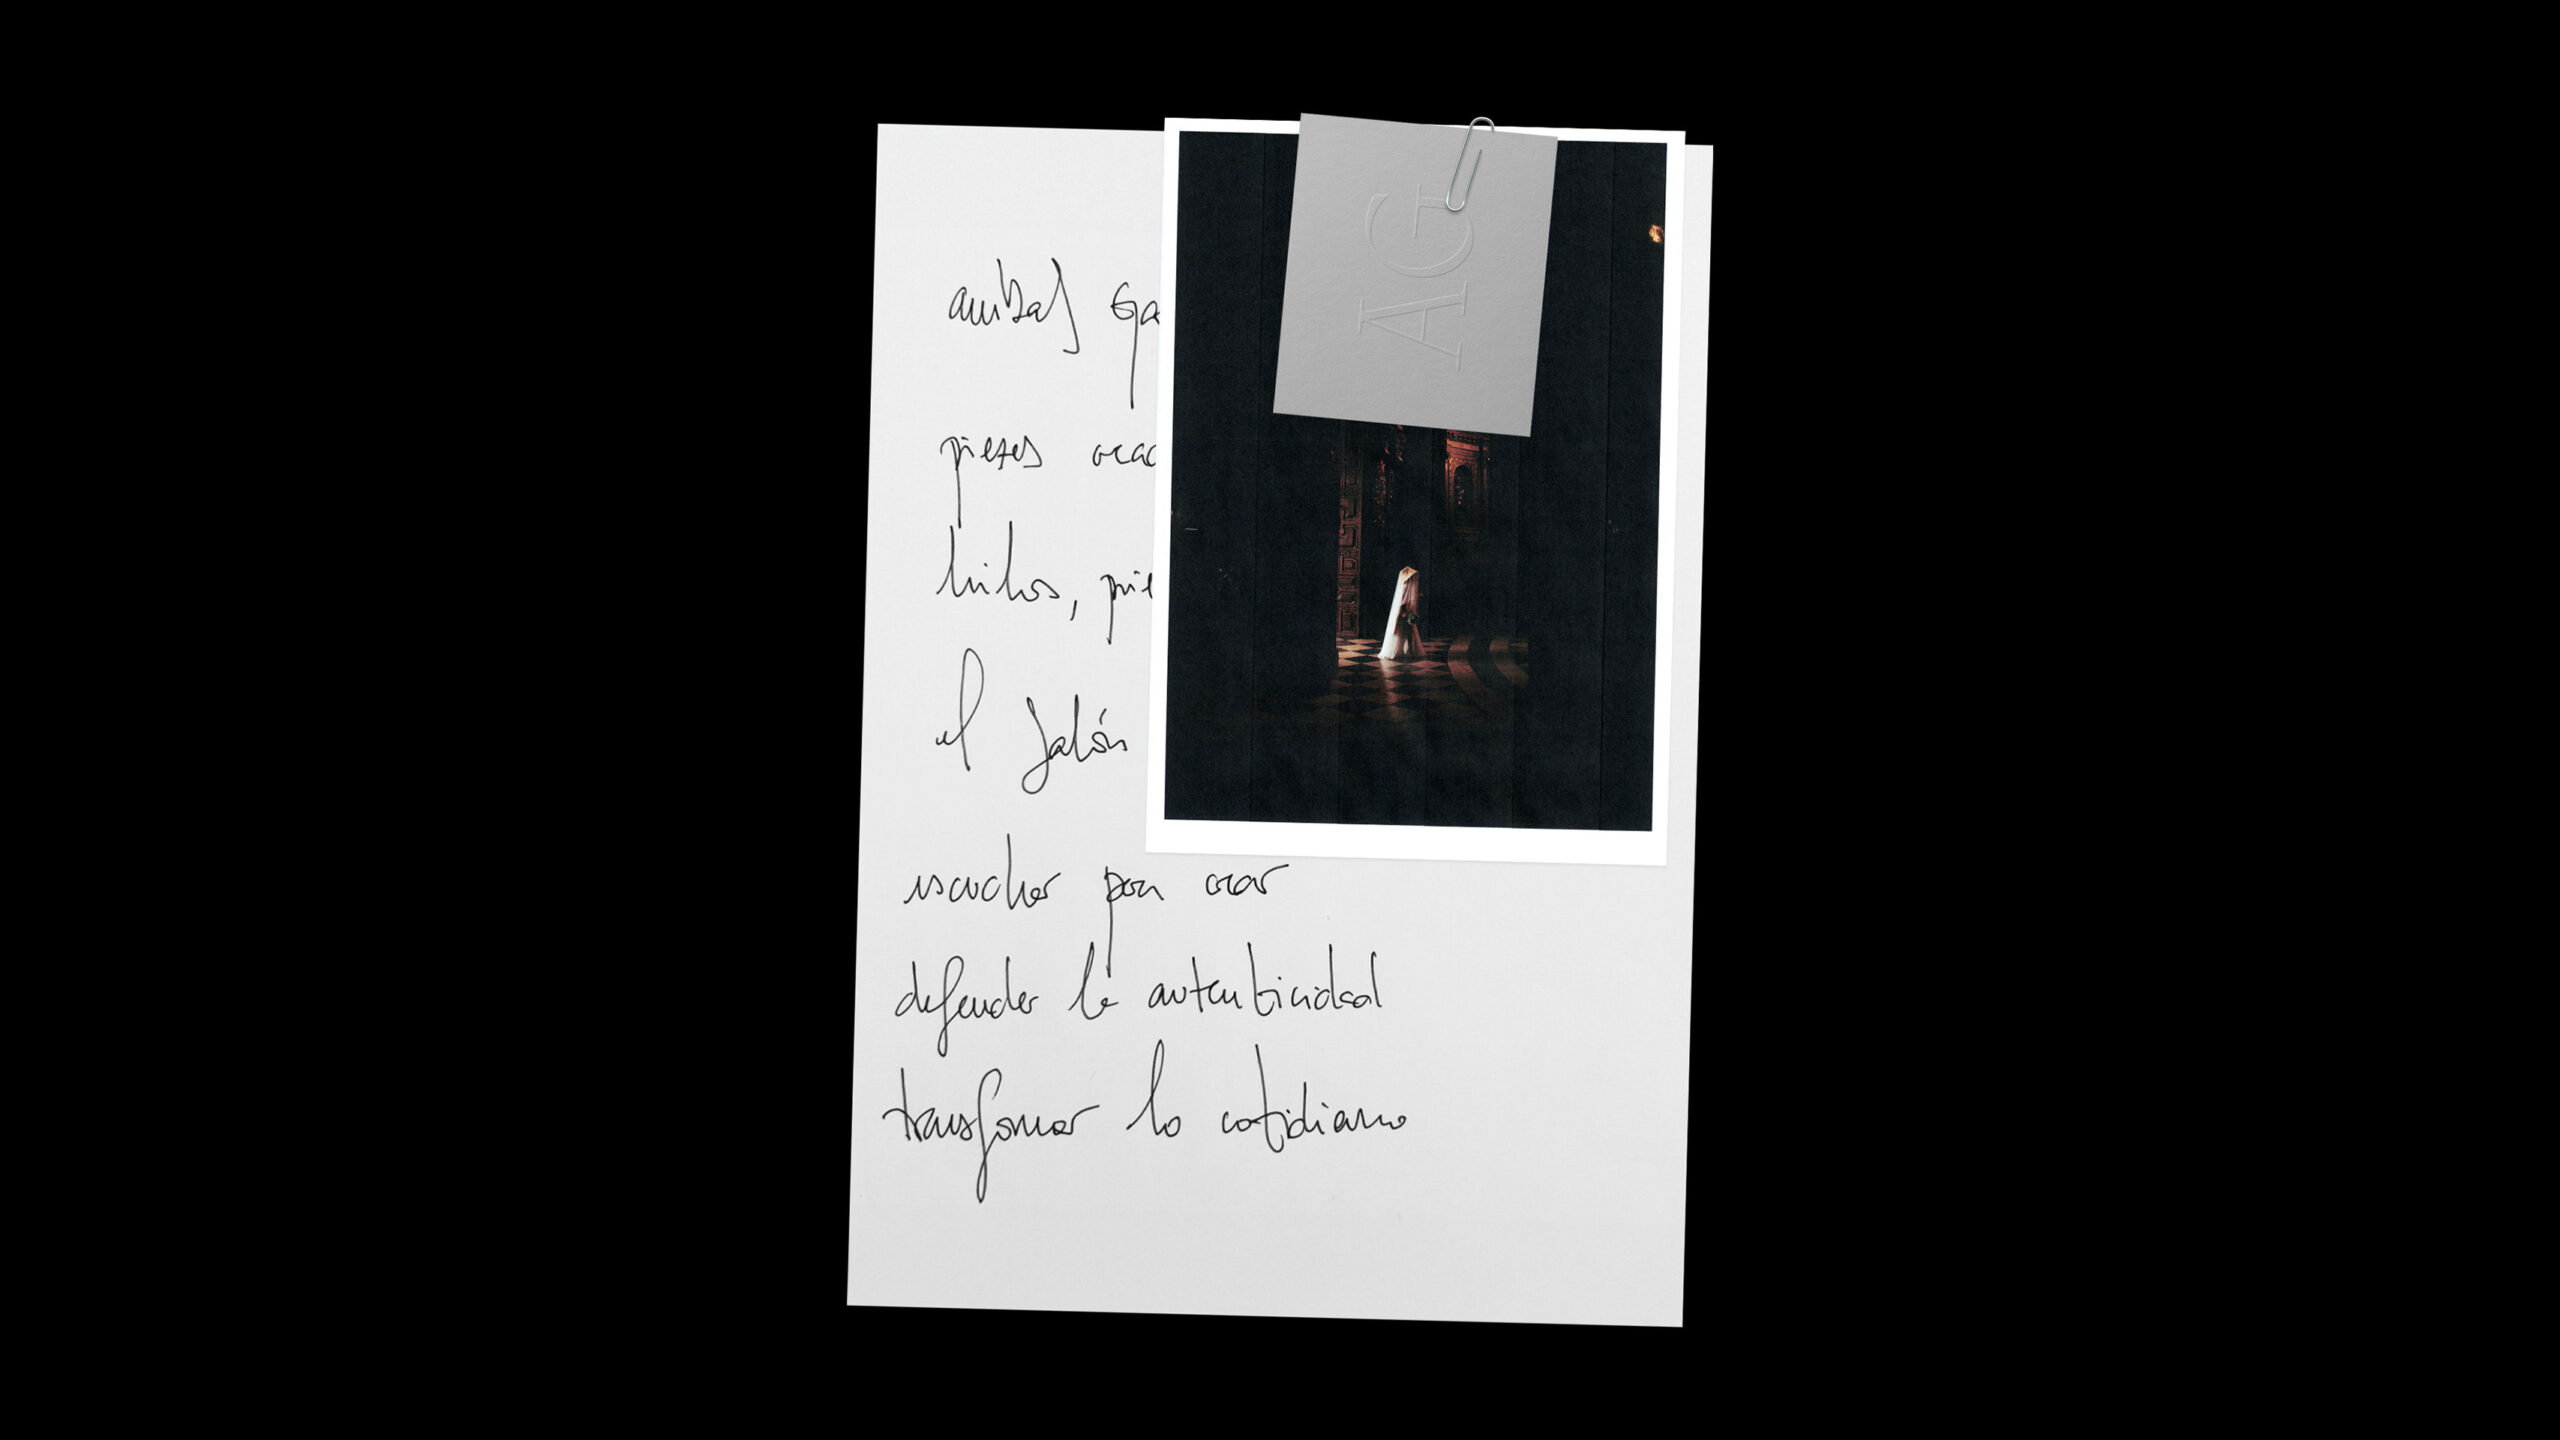 AG
anibal Ga
piezas crea
hilos, pie
el Jalón
escuchar para crear
defender la autenticidad
transformar lo cotidiano